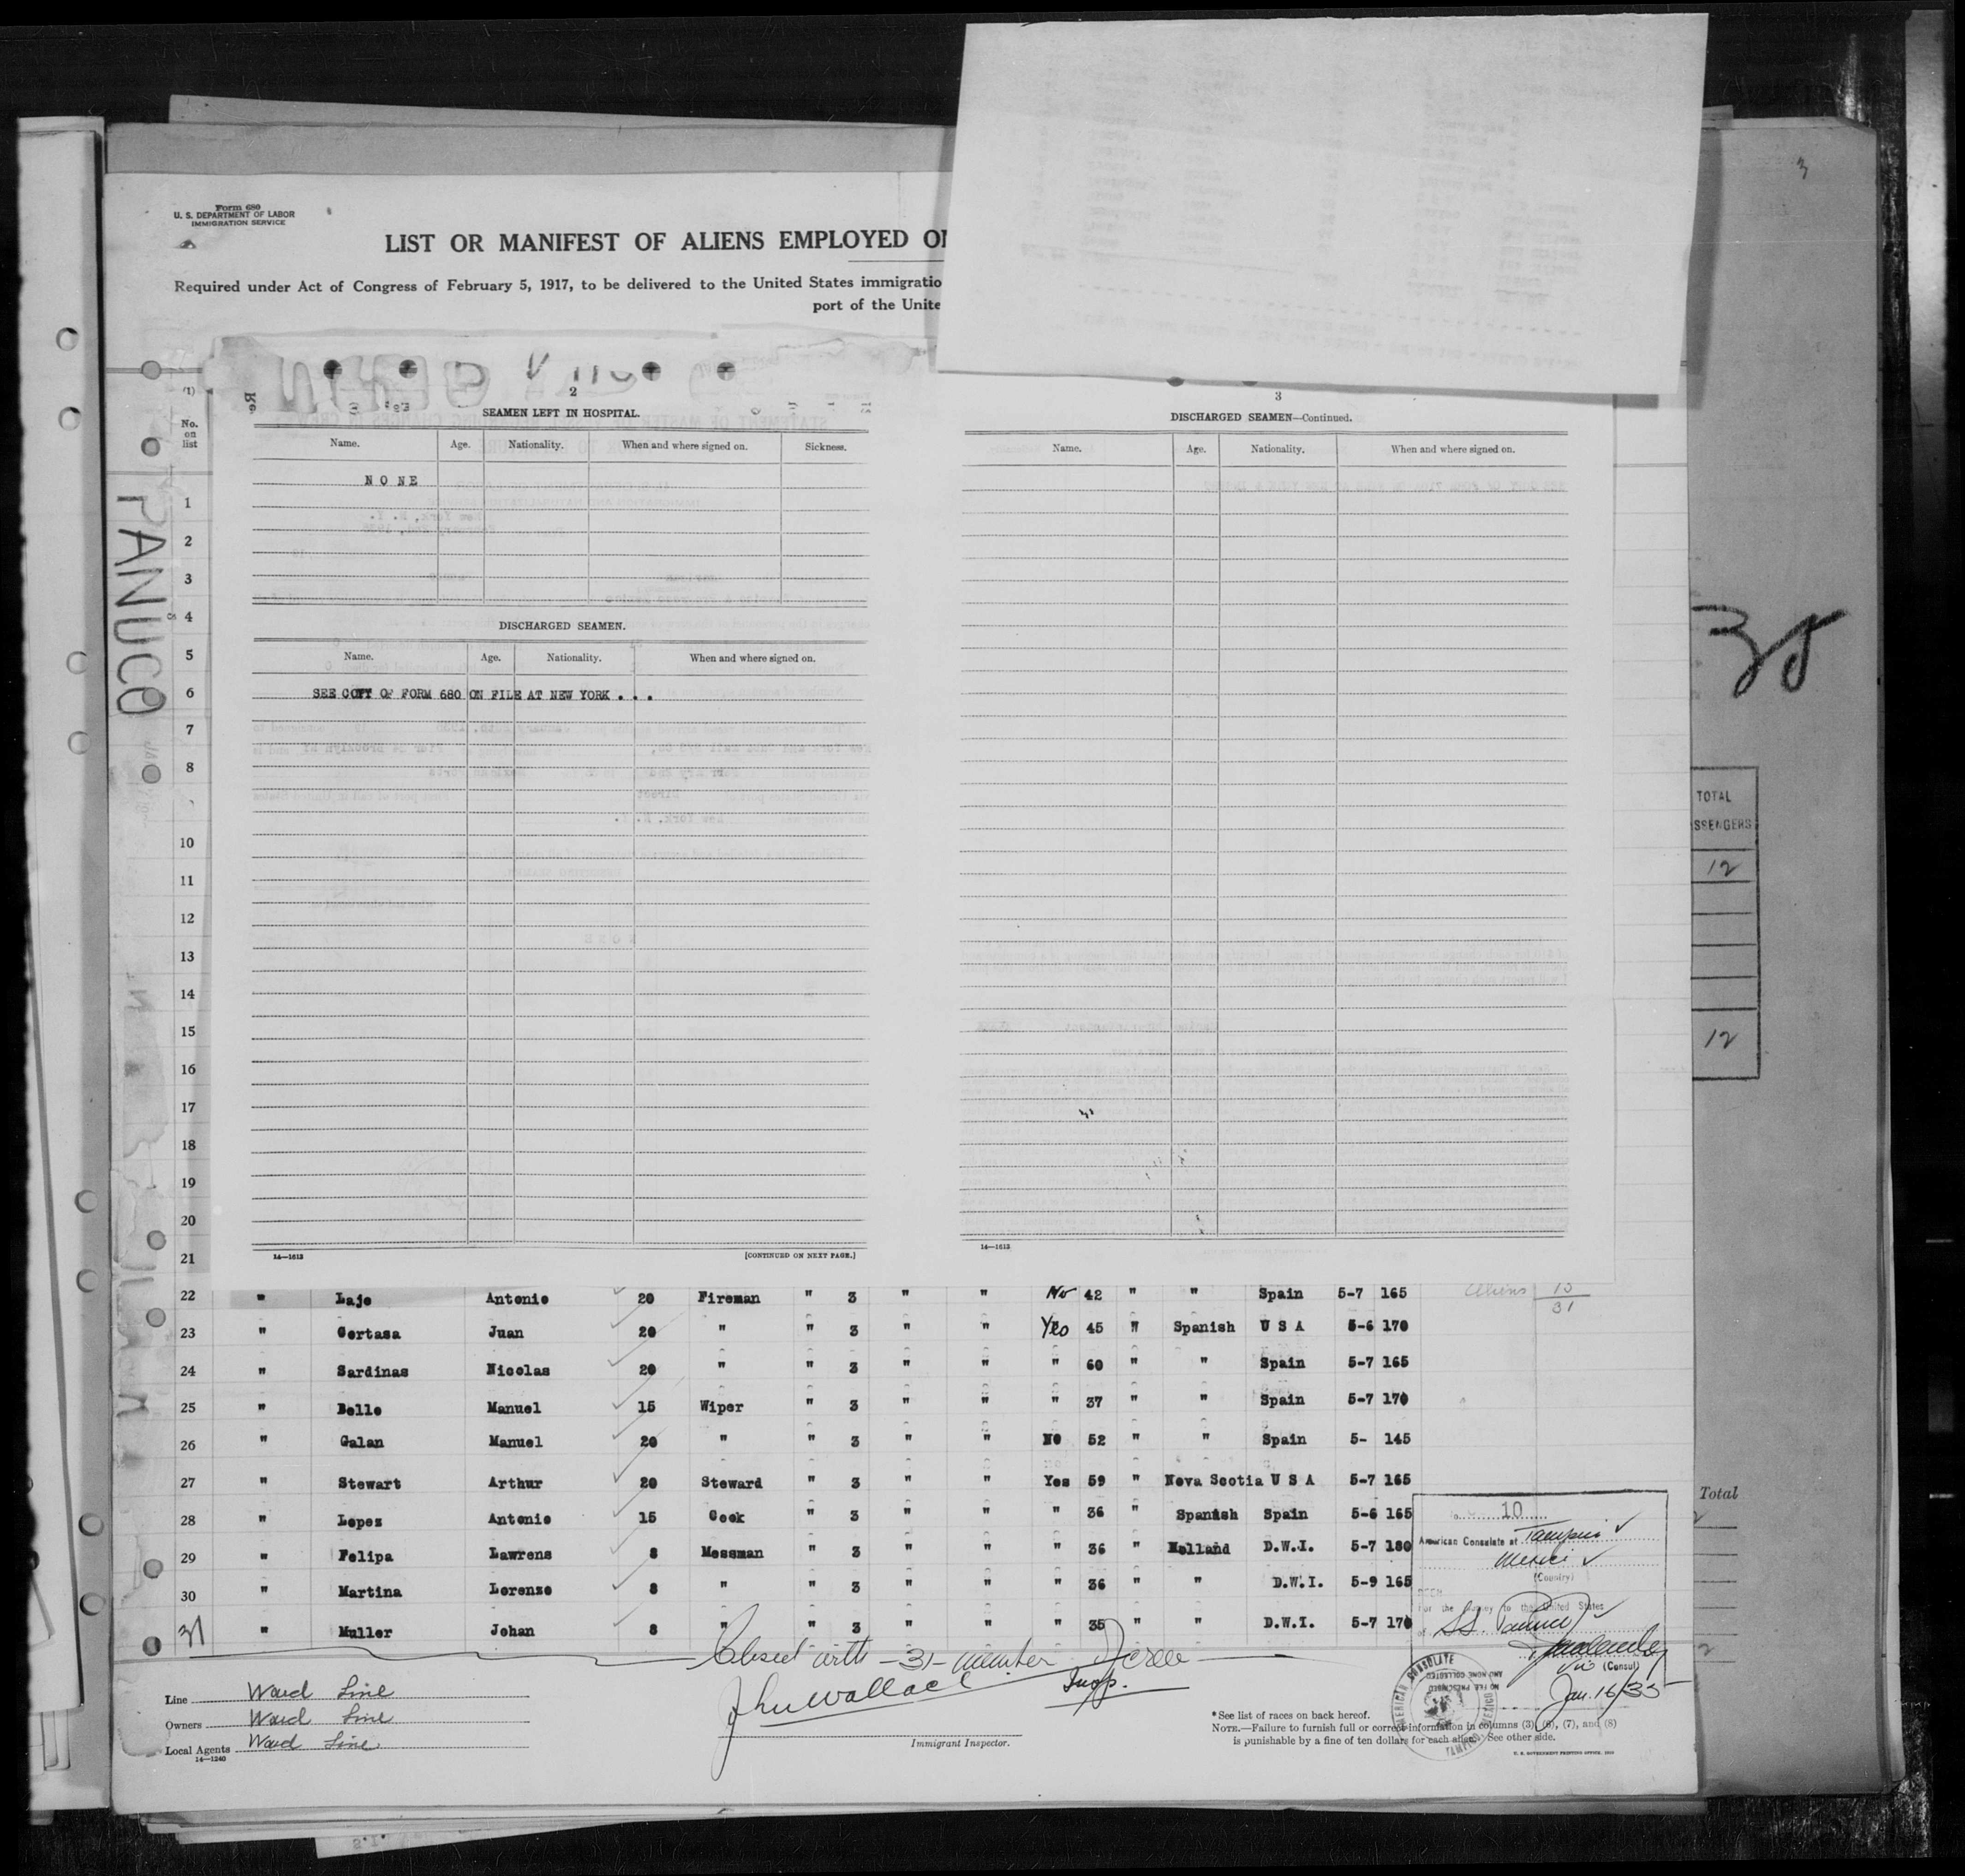 Form 680
U. S. DEPARTMENT OF LABOR
IMMIGRATION SERVICE
LIST OR MANIFEST OF ALIENS EMPLOYED O
Required under Act of Congress of February 5, 1917, to be delivered to the United States immigratio
port of the Unite
3
PANUCO
38
(1)
No.
on
list
1
2
3
4
5
6
7
8
10
11
12
13
14
15
16
17
18
19
20
21
2
SEAMEN LEFT IN HOSPITAL.
Name. Age. Nationality. When and where signed on. Sickness.
NONE
DISCHARGED SEAMEN.
Name. Age. Nationality. When and where signed on.
SEE COPY OF FORM 680 ON FILE AT NEW YORK . . .
14—1613 [CONTINUED ON NEXT PAGE.]
3
DISCHARGED SEAMEN—Continued.
Name. Age. Nationality. When and where signed on.
14—1613
TOTAL
SSENGERS
12
12
22 " Laje Antonio 20 Fireman " 3 " " No 42 " " Spain 5-7 165 Aliens 10
31
23 " Cortasa Juan 20 " " 3 " " Yes 45 " Spanish U S A 5-6 170
24 " Sardinas Nicolas 20 " " 3 " " " 60 " " Spain 5-7 165
25 " Bello Manuel 15 Wiper " 3 " " " 37 " " Spain 5-7 170
26 " Galan Manuel 20 " " 3 " " No 52 " " Spain 5- 145
27 " Stewart Arthur 20 Steward " 3 " " Yes 59 " Nova Scotia U S A 5-7 165
28 " Lopez Antonio 15 Cook " 3 " " " 36 " Spanish Spain 5-6 165
29 " Felipa Lawrens 8 Messman " 3 " " " 36 " Holland D.W.I. 5-7 180
30 " Martina Lorenzo 8 " " 3 " " " 36 " " D.W.I. 5-9 165
31 " Muller Johan 8 " " 3 " " " 35 " " D.W.I. 5-7 170
Total
No. 10
American Consulate at Tampico
Mexico
(Country)
SEEN
For the journey to the United States
of SS. Panuco
Vice (Consul)
Jan. 16/35
AMERICAN CONSULATE
TAMPICO MEXICO
NO FEE PRESCRIBED
AND NONE COLLECTED
Closed with -31- member
Insp.
Jhn Wallace
Immigrant Inspector.
Line Ward Line
Owners Ward Line
Local Agents Ward Line
14—1240
*See list of races on back hereof.
NOTE.—Failure to furnish full or correct information in columns (3), (6), (7), and (8)
is punishable by a fine of ten dollars for each alien. See other side.
U. S. GOVERNMENT PRINTING OFFICE